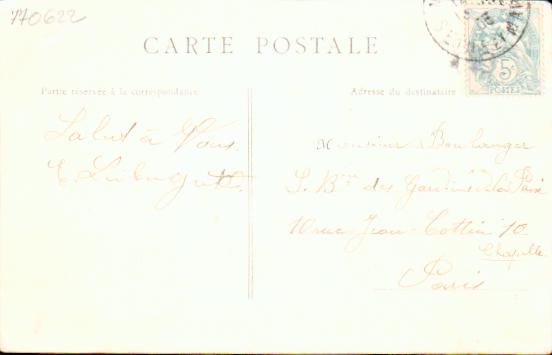 770622
CARTE POSTALE
Partie réservée à la correspondance
Adresse du destinataire
5c
POSTES
Salut à Vous.
Monsieur Boulanger
S. Bre des Gardiens de la Paix
10 rue Jean-Cottin 10
Chapelle
Paris